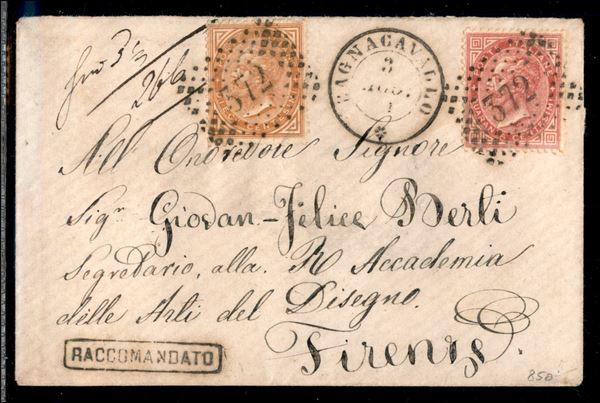 372
BAGNACAVALLO
3
372
All' Onorevole Signore
Sigr Giovan-Felice Berti
Segretario, alla R Accademia
delle Arti del Disegno.
Firenze
RACCOMANDATO
850